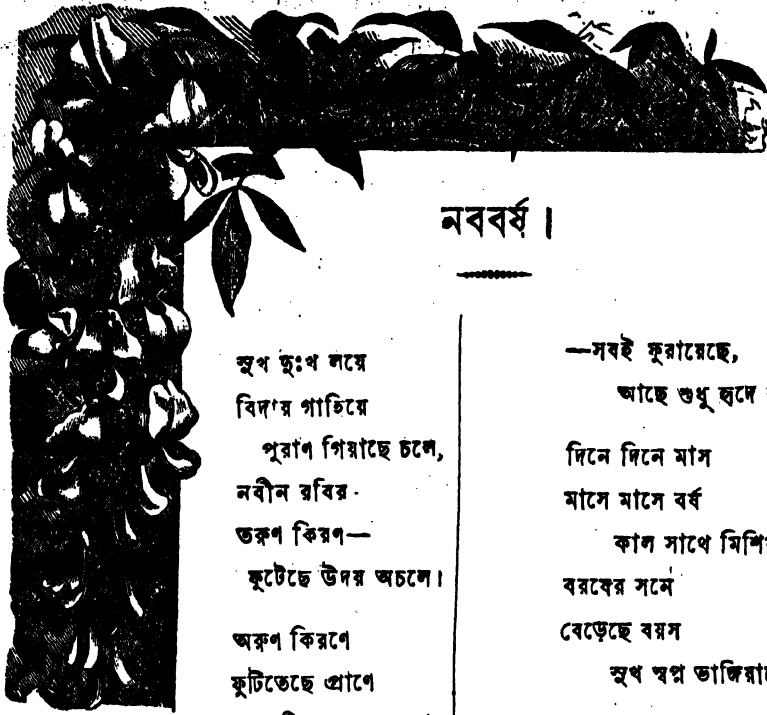 নববর্ষ ।
সুখ দুঃখ লয়ে
বিদায় গাহিয়ে
পুরাণ গিয়াছে চলে,
নবীন রবির
তরুণ কিরণ—
ফুটেছে উদয় অচলে।
অরুণ কিরণে
ফুটিতেছে প্রাণে
—সবই ফুরায়েছে,
আছে শুধু হৃদে
দিনে দিনে মাস
মাসে মাসে বর্ষ
কাল সাথে
বরষের সনে
বেড়েছে বয়স
সুখ স্বপ্ন